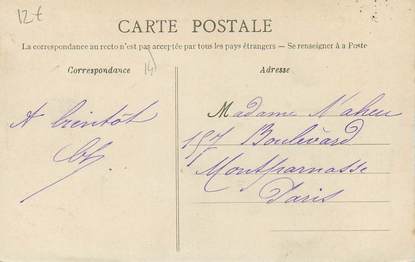 12€
CARTE POSTALE
La correspondance au recto n'est pas acceptée par tous les pays étrangers — Se renseigner à a Poste
Correspondance
Adresse
A bientôt
Madame
157 Boulevard
Montparnasse
Paris